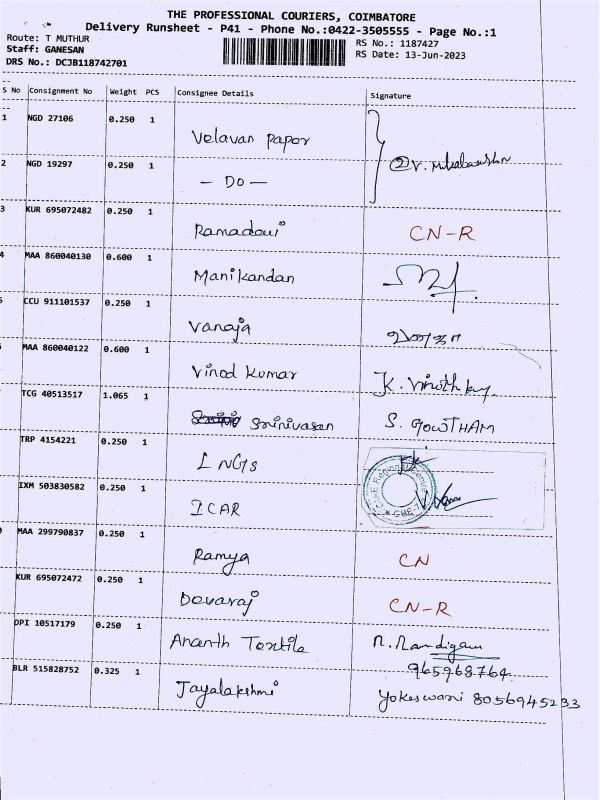 THE PROFESSIONAL COURIERS, COIMBATORE
Delivery Runsheet - P41 - Phone No.:0422-3505555 - Page No.:1
Route: T MUTHUR
RS No.: 1187427
Staff: GANESAN
RS Date: 13-Jun-2023
DRS No.: DCJB118742701
S No Consignment No Weight PCS Consignee Details Signature
1 NGD 27106 0.250 1 Velavan Papor
2 NGD 19297 0.250 1 — DO —
3 KUR 695072482 0.250 1 Ramadevi CN-R
4 MAA 860040130 0.600 1 Manikandan
CCU 911101537 0.250 1 Vanaja வனஜா
MAA 860040122 0.600 1 Vinod Kumar
TCG 40513517 1.065 1 Srinivasan S. GOWTHAM
TRP 4154221 0.250 1 LNGS
IXM 503830582 0.250 1 ICAR
MAA 299790837 0.250 1 Ramya CN
KUR 695072472 0.250 1 Devaraj CN-R
DPI 10517179 0.250 1 Ananth Textile
965968764
BLR 515828752 0.325 1 Jayalakshmi Yokeswari 8056945233